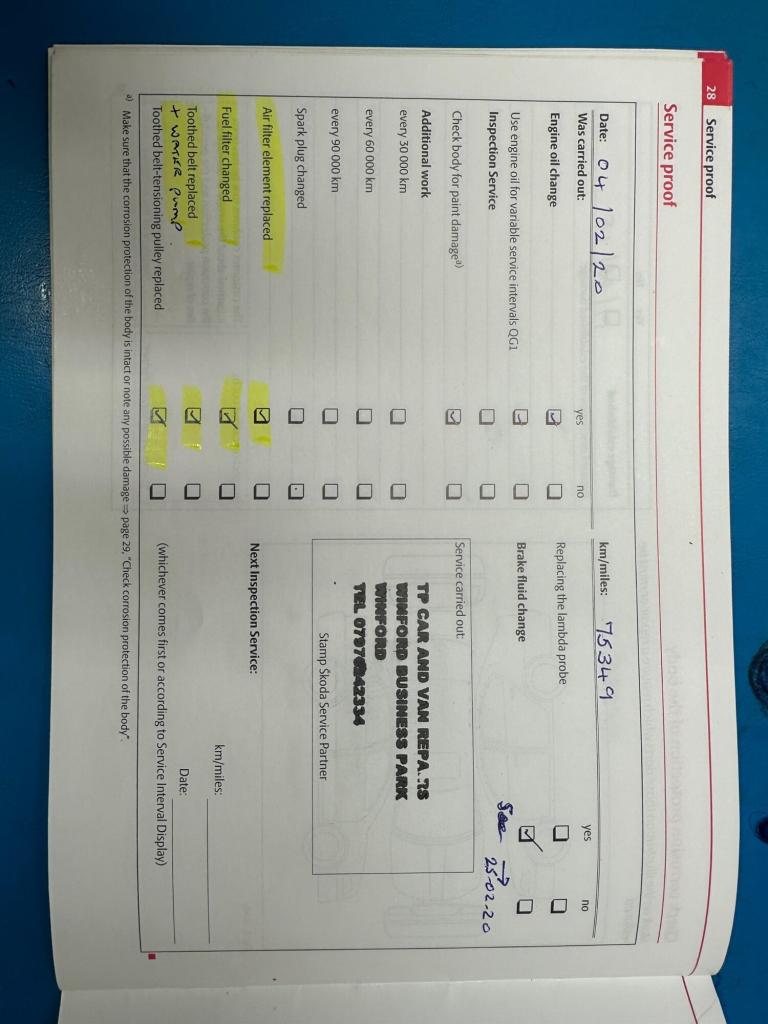 28 Service proof
Service proof
Date: 04/02/20 km/miles: 75349
Was carried out: yes no yes no
Engine oil change Replacing the lambda probe
Use engine oil for variable service intervals QG1 Brake fluid change
See → 25-02-20
Inspection Service
Check body for paint damage a) Service carried out:
Additional work
every 30 000 km
every 60 000 km
every 90 000 km
Spark plug changed
TP CAR AND VAN REPA..RS
WINFORD BUSINESS PARK
WINFORD
TEL
Stamp Škoda Service Partner
Air filter element replaced Next Inspection Service:
Fuel filter changed km/miles:
Toothed belt replaced Date:
+ WATER PUMP
Toothed belt-tensioning pulley replaced (whichever comes first or according to Service Interval Display)
a) Make sure that the corrosion protection of the body is intact or note any possible damage ⇒ page 29, "Check corrosion protection of the body".